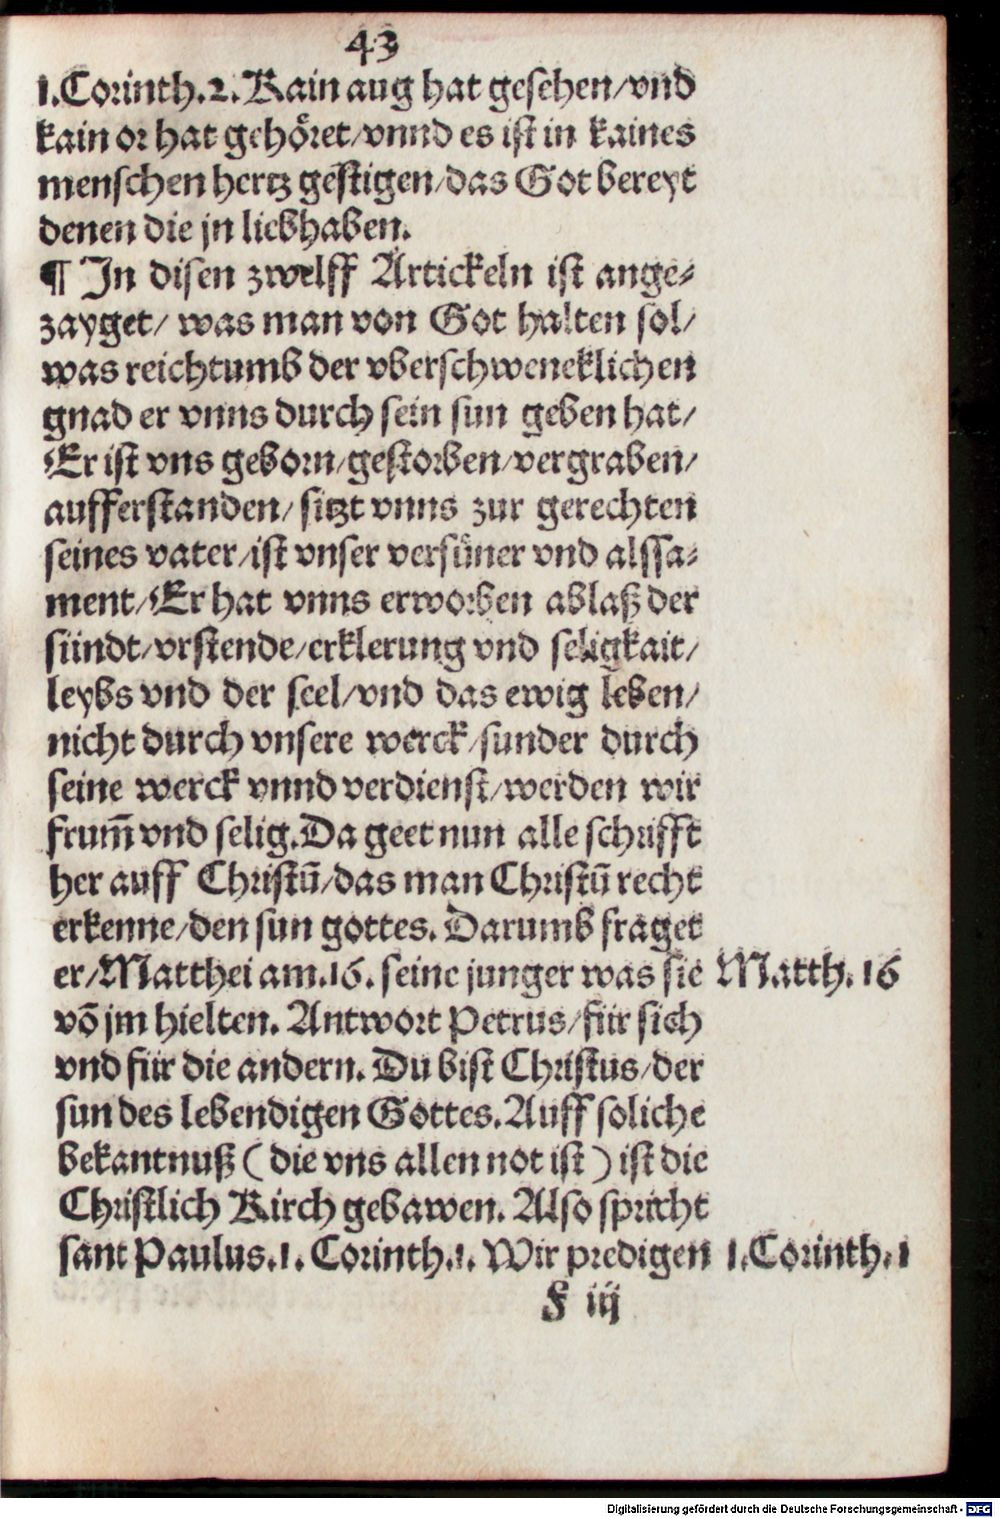 43
1.Corinth.2. Kain aug hat gesehen/vnd
kain or hat gehöret/vnnd es ist in kaines
menschen hertz gestigen/das Got bereyt
denen die jn liebhaben.
¶ In disen zwelff Artickeln ist ange-
zayget/ was man von Got halten sol/
was reichtumb der vberschweneklichen
gnad er vnns durch sein sun geben hat/
Er ist vns geborn/gestorben/vergraben/
aufferstanden/ sitzt vnns zur gerechten
seines vater/ist vnser versüner vnd alssa-
ment/Er hat vnns erworben ablaß der
sündt/vrstende/erklerung vnd seligkait/
leybs vnd der seel/vnd das ewig leben/
nicht durch vnsere werck/sunder durch
seine werck vnnd verdienst/werden wir
frum̃ vnd selig. Da geet nun alle schrifft
her auff Christū/das man Christū recht
erkenne/den sun gottes. Darumb fraget
er/Matthei am.16. seine junger was sie Matth. 16
võ jm hielten. Antwort Petrus/für sich
vnd für die andern. Du bist Christus/der
sun des lebendigen Gottes. Auff soliche
bekantnuß ( die vns allen not ist ) ist die
Christlich Kirch gebawen. Also spricht
sant Paulus.1. Corinth.1. Wir predigen 1.Corinth.1
F iij
Digitalisierung gefördert durch die Deutsche Forschungsgemeinschaft - DFG